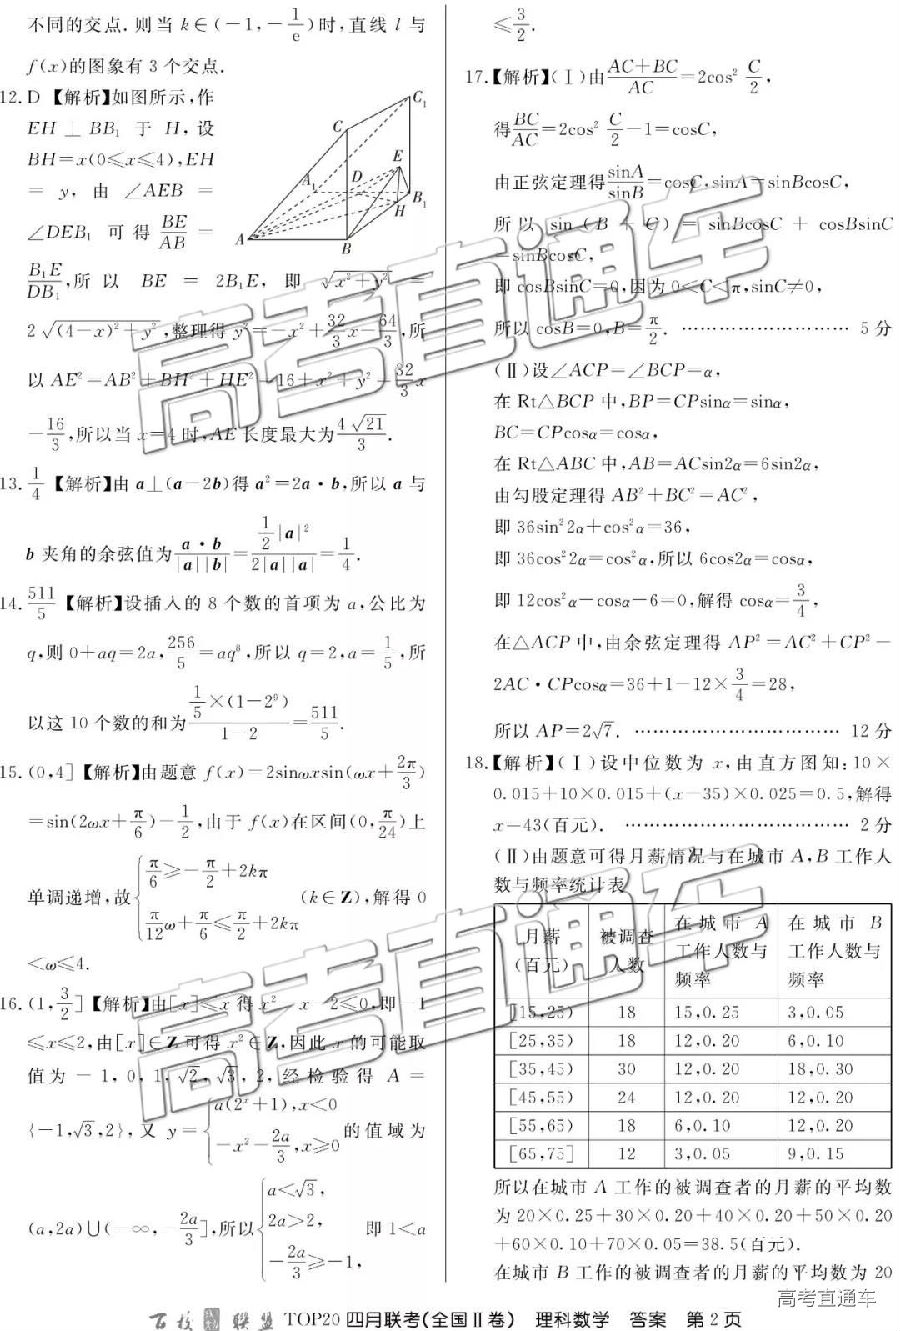 不同的交点.则当k∈(-1,-1/e)时,直线l与
f(x)的图象有3个交点.
12.D【解析】如图所示,作
EH⊥BB₁于H,设
BH=x(0≤x≤4),EH
=y,由∠AEB=
∠DEB₁可得BE/AB=
B₁E/DB₁,所以BE=2B₁E,即√(x²+y²)=
2√((4-x)²+y²),整理得y²=-x²+32/3x-64/3,所
以AE²=AB²+BH²+HE²=16+x²+y²=32/3x
-16/3,所以当x=4时,AE长度最大为4√21/3.
C
C₁
E
A₁
D
B₁
H
A
B
13.1/4【解析】由a⊥(a-2b)得a²=2a·b,所以a与
b夹角的余弦值为a·b/|a||b|=1/2|a|²/2|a||a|=1/4.
14.511/5【解析】设插入的8个数的首项为a,公比为
q,则0+aq=2a,256/5=aq⁸,所以q=2,a=1/5,所
以这10个数的和为1/5×(1-2⁹)/1-2=511/5.
15.(0,4]【解析】由题意f(x)=2sinωxsin(ωx+2π/3)
=sin(2ωx+π/6)-1/2,由于f(x)在区间(0,π/24)上
单调递增,故{π/6≥-π/2+2kπ
π/12ω+π/6≤π/2+2kπ(k∈Z),解得0
<ω≤4.
16.(1,3/2]【解析】由[x]≤x得x²-x-2≤0,即-1
≤x≤2,由[x]∈Z可得x²∈Z,因此x的可能取
值为-1,0,1,√2,√3,2,经检验得A=
{-1,√3,2},又y={a(2ˣ+1),x<0
-x²-2a/3,x≥0的值域为
(a,2a)∪(-∞,-2a/3],所以{a<√3,
2a>2,
-2a/3≥-1,即1<a
≤3/2.
17.【解析】(Ⅰ)由AC+BC/AC=2cos²C/2,
得BC/AC=2cos²C/2-1=cosC,
由正弦定理得sinA/sinB=cosC,sinA=sinBcosC,
所以sin(B+C)=sinBcosC+cosBsinC
=sinBcosC,
即cosBsinC=0,因为0<C<π,sinC≠0,
所以cosB=0,B=π/2.…………………………5分
(Ⅱ)设∠ACP=∠BCP=α,
在Rt△BCP中,BP=CPsinα=sinα,
BC=CPcosα=cosα,
在Rt△ABC中,AB=ACsin2α=6sin2α,
由勾股定理得AB²+BC²=AC²,
即36sin²2α+cos²α=36,
即36cos²2α=cos²α,所以6cos2α=cosα,
即12cos²α-cosα-6=0,解得cosα=3/4,
在△ACP中,由余弦定理得AP²=AC²+CP²-
2AC·CPcosα=36+1-12×3/4=28,
所以AP=2√7.……………………………12分
18.【解析】(Ⅰ)设中位数为x,由直方图知:10×
0.015+10×0.015+(x-35)×0.025=0.5,解得
x=43(百元).………………………………2分
(Ⅱ)由题意可得月薪情况与在城市A,B工作人
数与频率统计表
月薪(百元) 被调查人数 在城市A工作人数与频率 在城市B工作人数与频率
[15,25) 18 15,0.25 3,0.05
[25,35) 18 12,0.20 6,0.10
[35,45) 30 12,0.20 18,0.30
[45,55) 24 12,0.20 12,0.20
[55,65) 18 6,0.10 12,0.20
[65,75] 12 3,0.05 9,0.15
所以在城市A工作的被调查者的月薪的平均数
为20×0.25+30×0.20+40×0.20+50×0.20
+60×0.10+70×0.05=38.5(百元).
在城市B工作的被调查者的月薪的平均数为20
高考直通车
高考直通车
高考直通车
百校联盟 TOP20四月联考(全国Ⅱ卷) 理科数学 答案 第2页